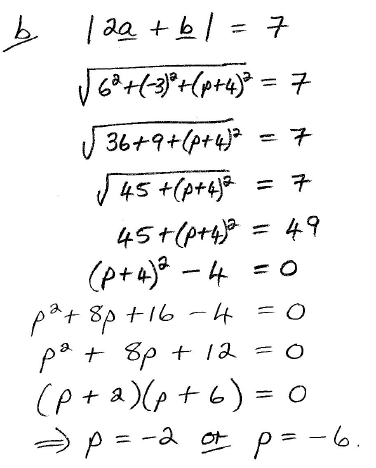 b |2a + b| = 7
√(6²+(-3)²+(p+4)²) = 7
√(36+9+(p+4)²) = 7
√(45+(p+4)²) = 7
45+(p+4)² = 49
(p+4)² - 4 = 0
p²+ 8p +16 - 4 = 0
p² + 8p + 12 = 0
(p+2)(p+6) = 0
⇒ p = -2 or p = -6.